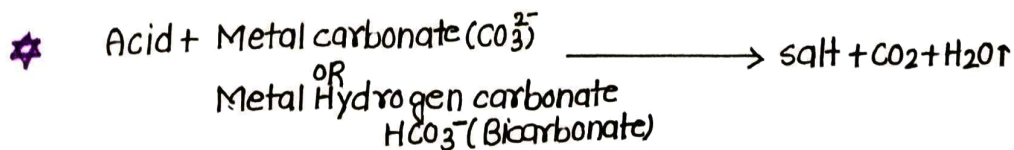 Acid + Metal carbonate (CO3^2-) ⟶ salt + CO2 + H2O↑
OR
Metal Hydrogen carbonate
HCO3^- (Bicarbonate)